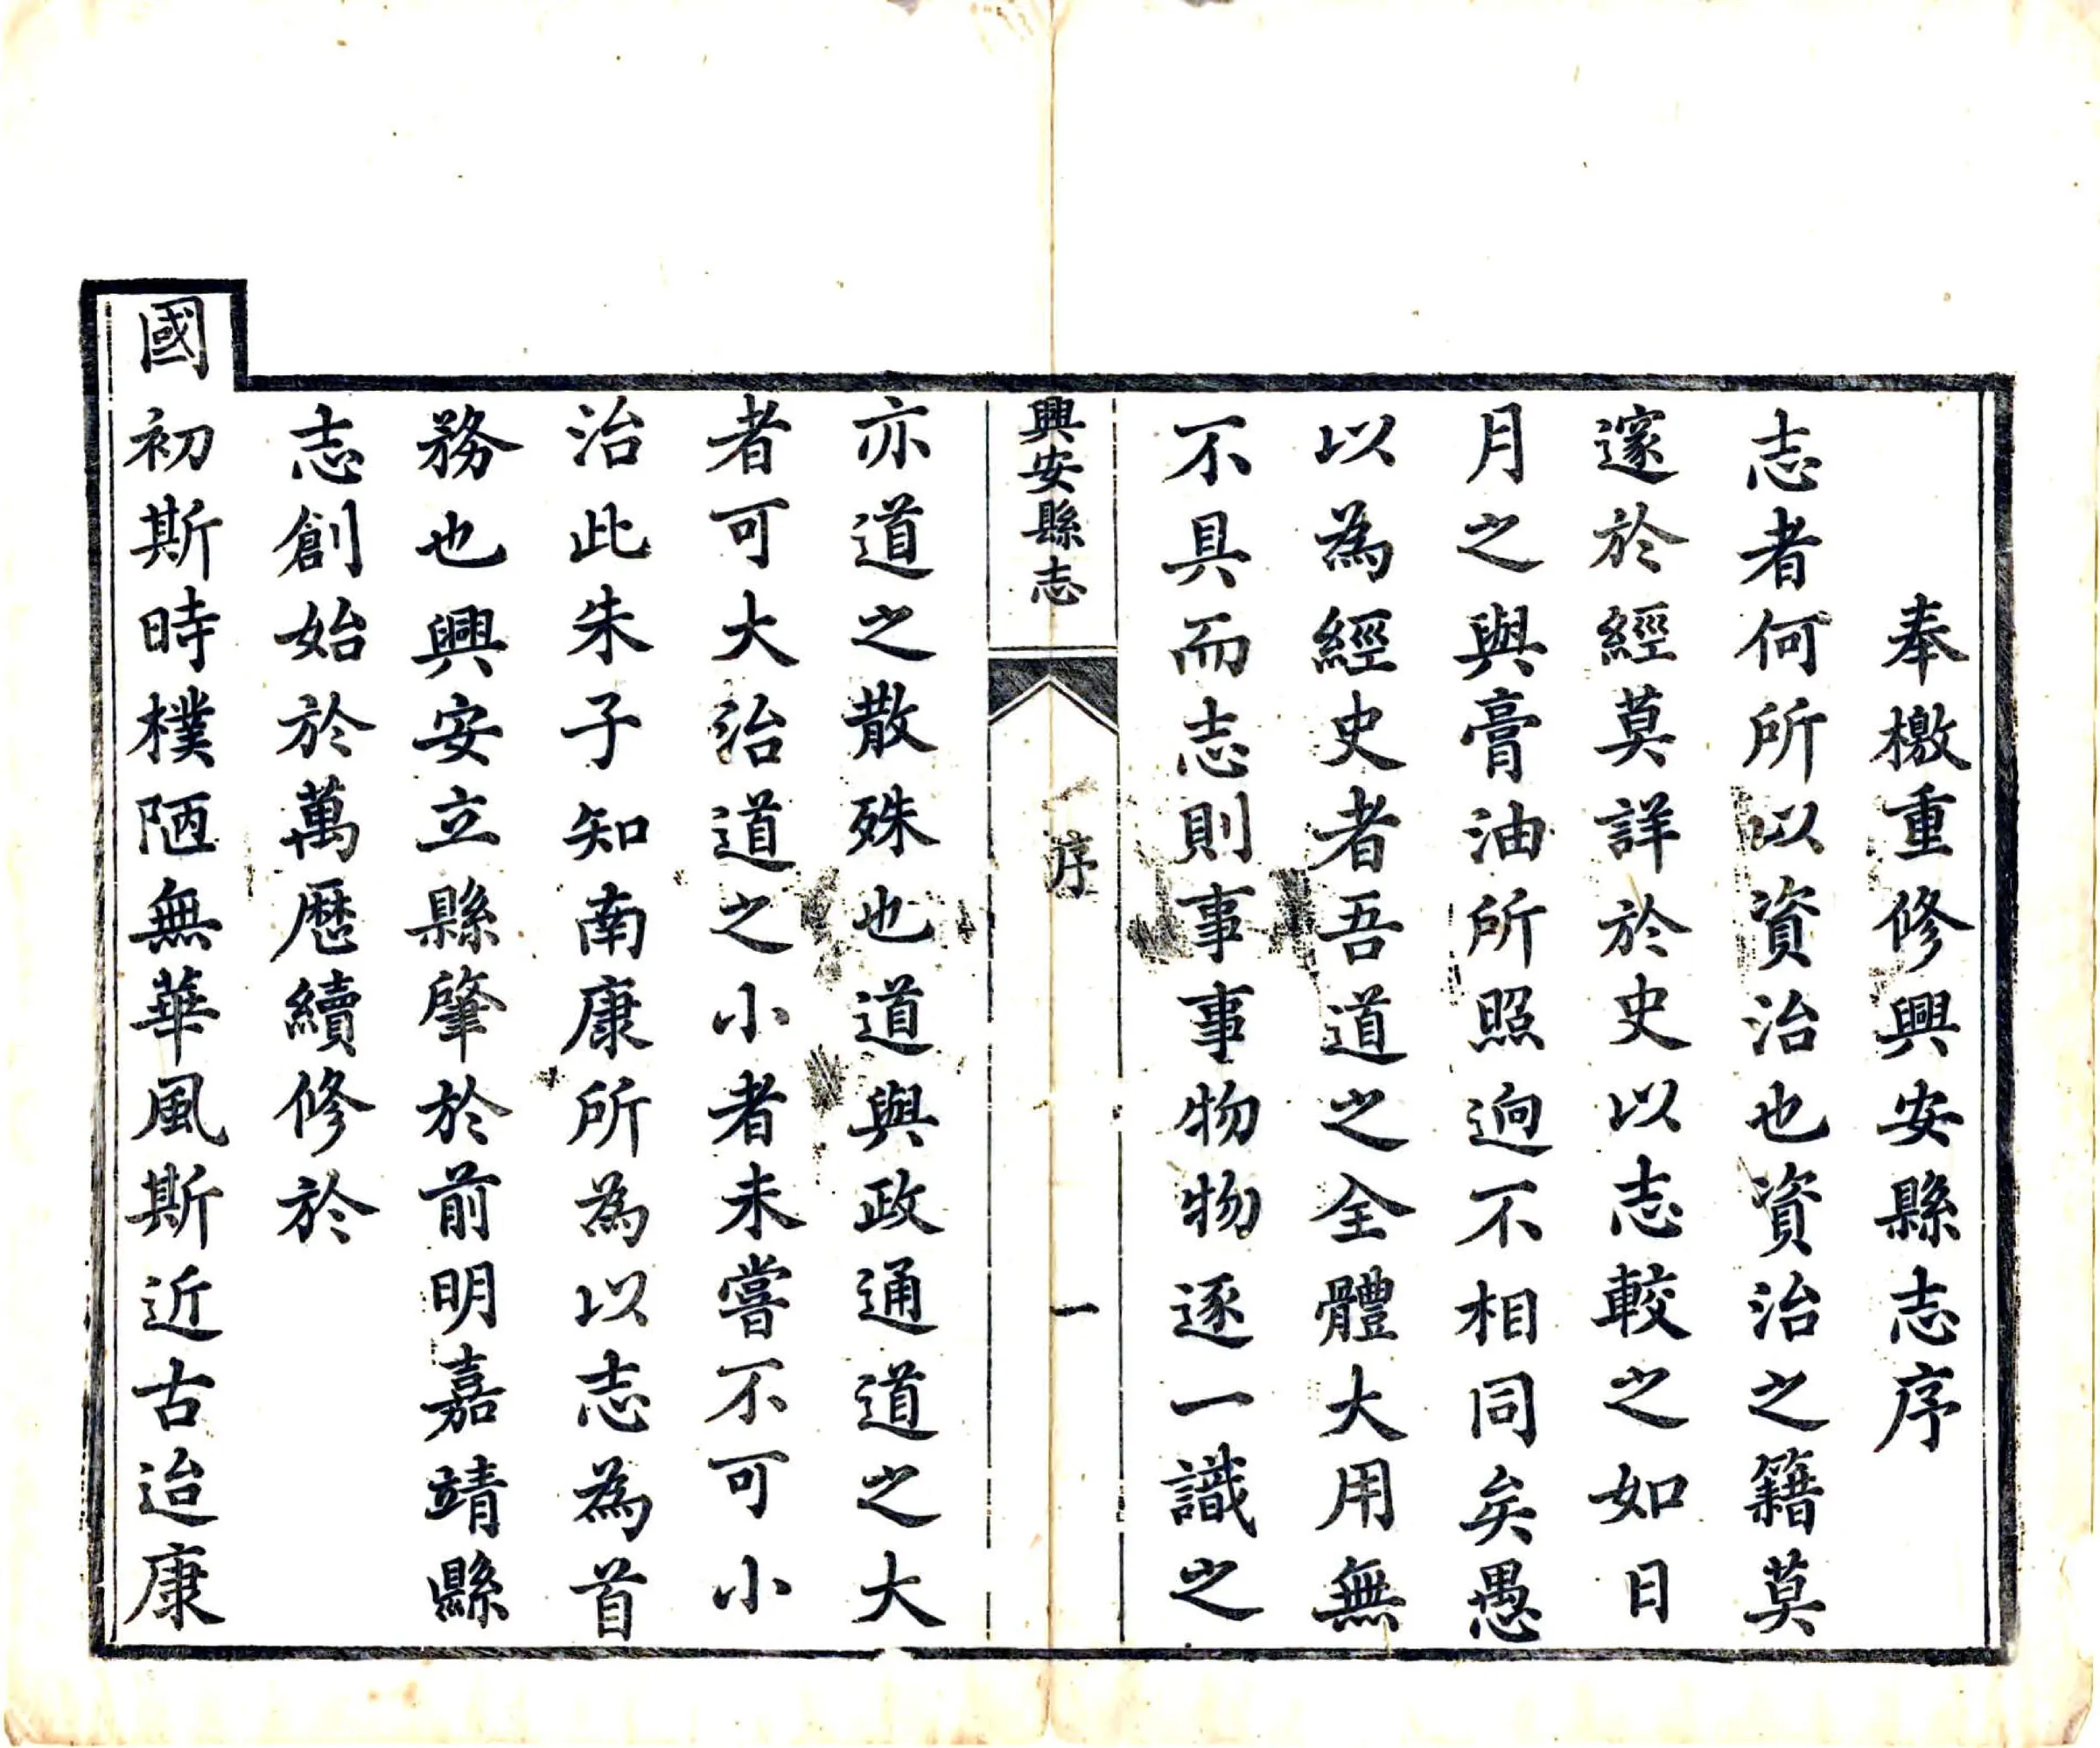 奉檄重修興安縣志序
志者何所以資治也資治之籍莫
邃於經莫詳於史以志較之如日
月之與膏油所照迥不相同矣愚
以為經史者吾道之全體大用無
不具而志則事事物物逐一識之
興安縣志
序
一
亦道之散殊也道與政通道之大
者可大治道之小者未嘗不可小
治此朱子知南康所為以志為首
務也興安立縣肇於前明嘉靖縣
志創始於萬厯續修於
國初斯時樸陋無華風斯近古迨康